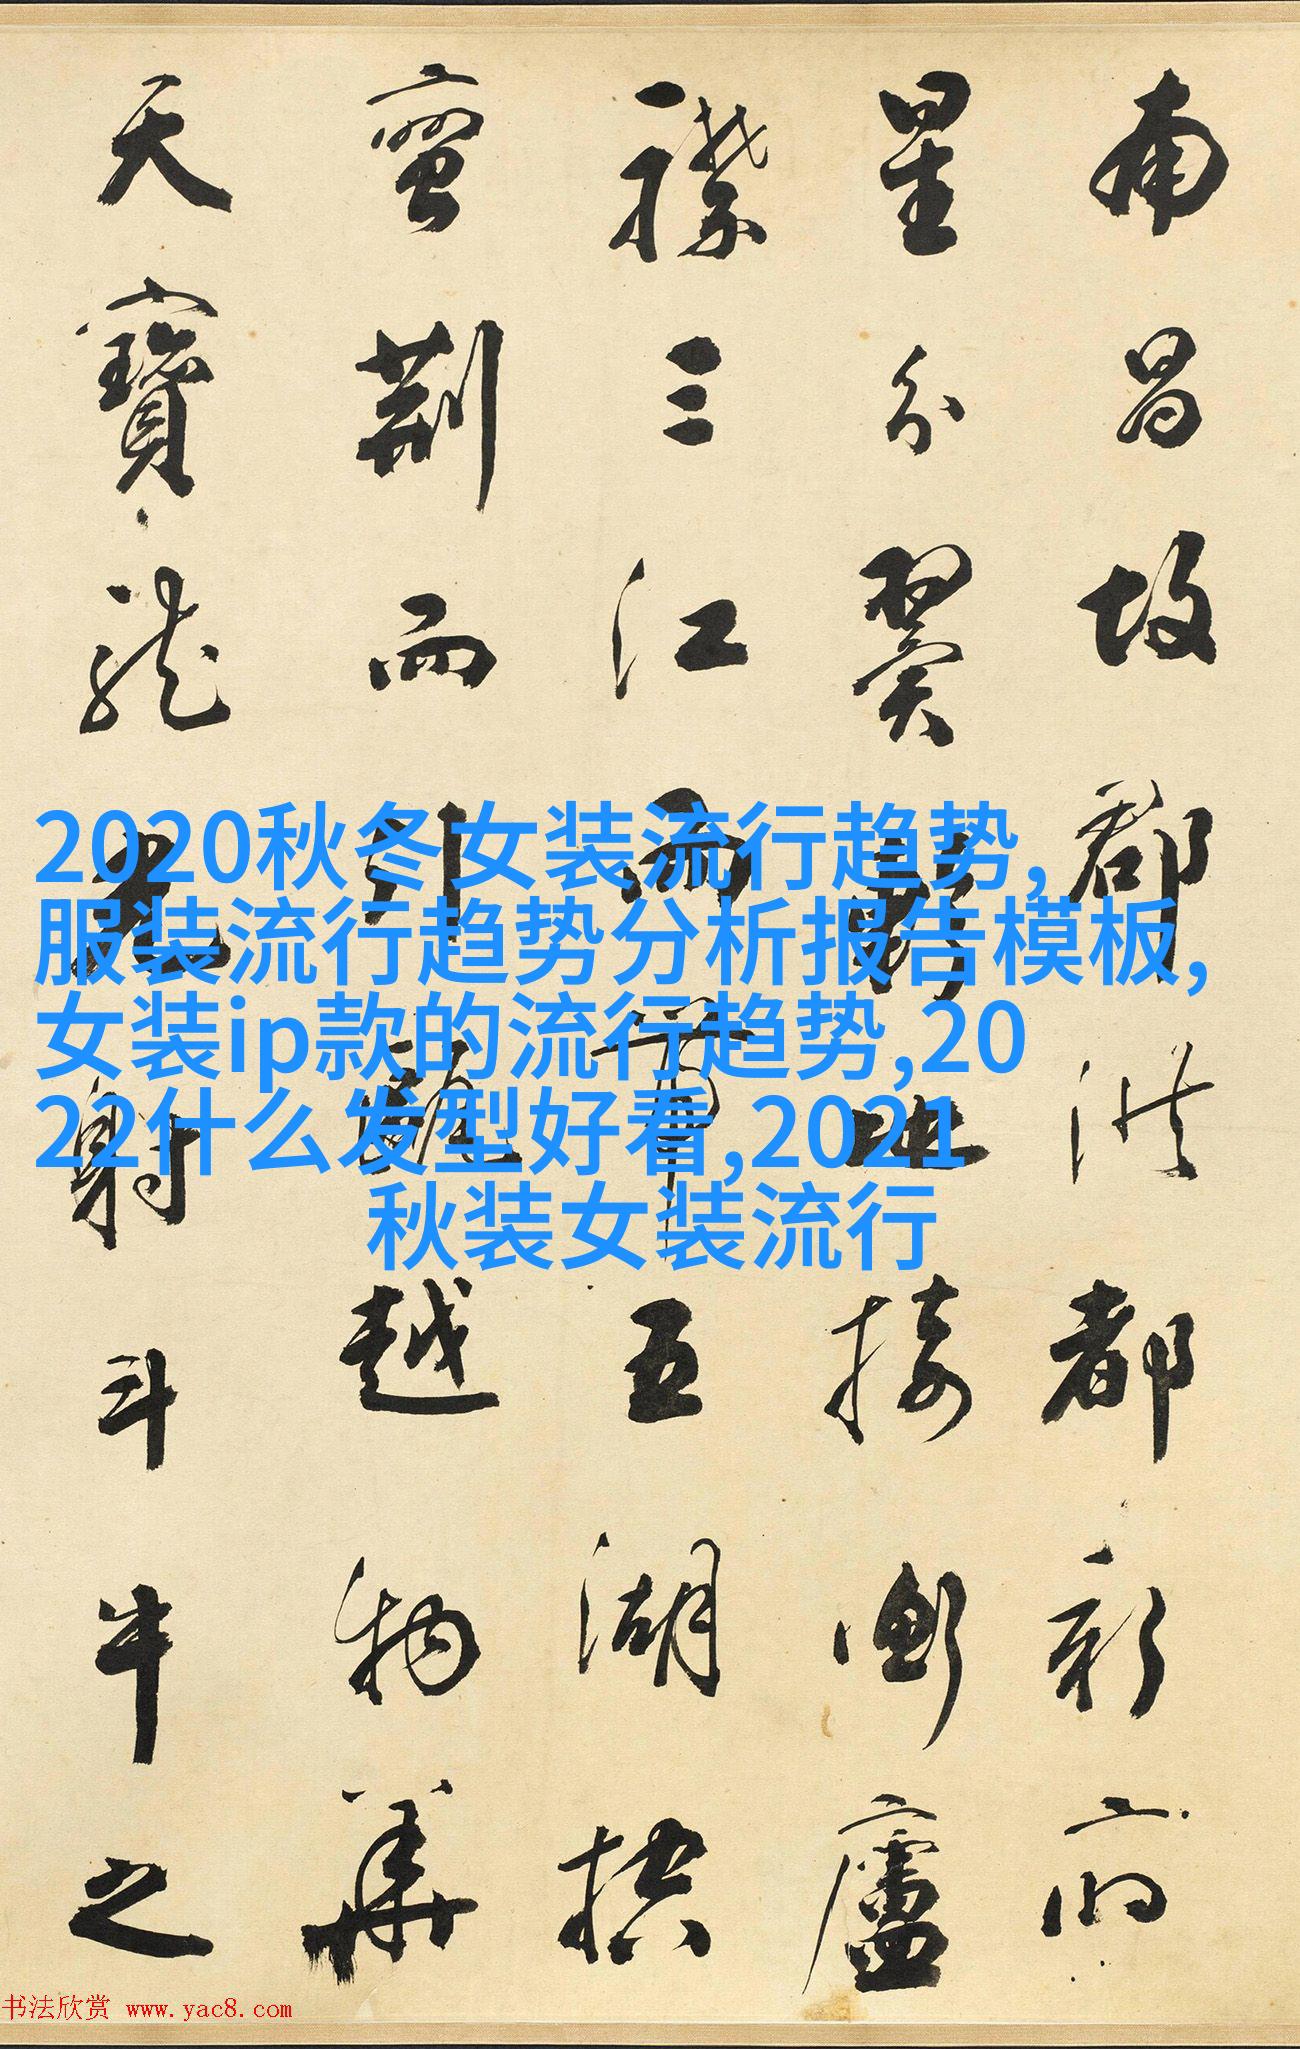 南昌故郡洪都新府
星分翼軫地接衡廬
襟三江而帶五湖控
蠻荊而引甌越物華
天寶龍光射斗牛之
2020秋冬女装流行趋势,
服装流行趋势分析报告模板,
女装ip款的流行趋势,20
22什么发型好看,2021
秋装女装流行
书法欣赏 www.yac8.com